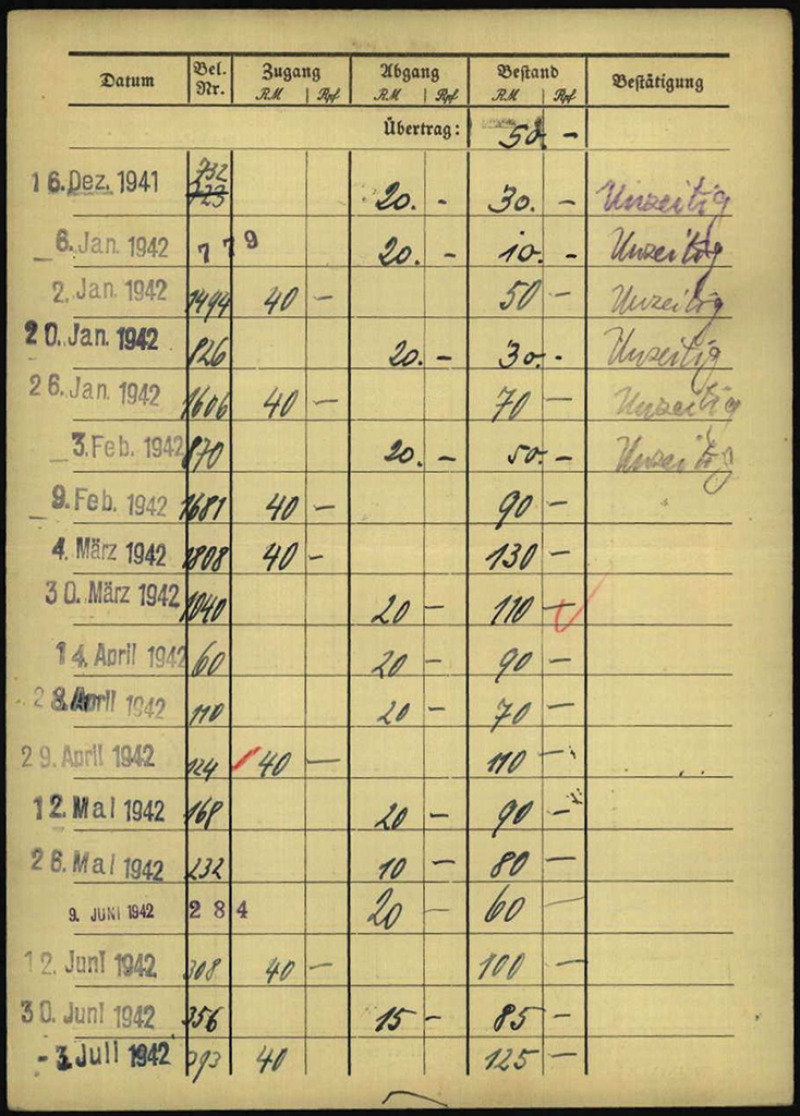 Datum Bel. Nr. Zugang RM Rpf Abgang RM Rpf Bestand RM Rpf Bestätigung
Übertrag: 50. -
16. Dez. 1941 732 723 20. - 30. - Unzeitig
6. Jan. 1942 779 20. - 10. - Unzeitig
2. Jan. 1942 1494 40 - 50 - Unzeitig
20. Jan. 1942 826 20. - 30. - Unzeitig
26. Jan. 1942 1606 40 - 70 - Unzeitig
3. Feb. 1942 870 20. - 50. - Unzeitig
9. Feb. 1942 1681 40 - 90 -
4. März 1942 1808 40 - 130 -
30. März 1942 1040 20 - 110 -
14. April 1942 60 20 - 90 -
28. April 1942 110 20 - 70 -
29. April 1942 124 40 - 110 -
12. Mai 1942 168 20 - 90 -
26. Mai 1942 232 10 - 80 -
9. JUNI 1942 284 20 - 60 -
12. Juni 1942 308 40 - 100 -
30. Juni 1942 356 15 - 85 -
- 3. Juli 1942 393 40 125 -